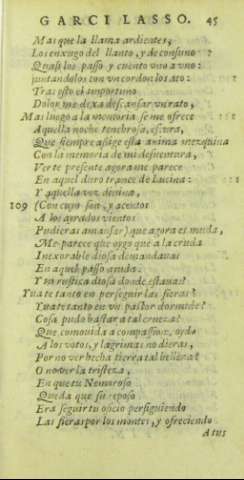 GARCI LASSO. 45
Mas que la llama ardientes,
Los enxugo del llanto, y de consuno
Quasi los passo y cuento uno a uno:
juntandolos con un cordon los ato:
Tras esto el importuno
Dolor me dexa descansar un rato,
Mas luego a la memoria se me ofrece
Aquella noche tenebrosa, escura,
Que siempre aflige esta anima mezquina
Con la memoria de mi desventura,
Verte presente agora me parece
En aquel duro trance de Lucina:
Y aquella voz divina,
109 (Con cuyo son, y acentos
A los ayrados vientos
Pudieras amansar) que agora es muda,
Me parece que oygo que a la cruda
Inexorable diosa demandavas
En aquel passo ayuda:
Y tu rustica diosa donde estavas?
Yva te tanto en perseguir las fieras?
Yva te tanto en un pastor dormido?
Cosa pudo bastar a tal crueza?
Que comovida a compassion, oydo
A los votos, y lagrimas no dieras,
Por no ver hecha tierra tal belleza?
O no ver la tristeza,
En que tu Nemoroso
Queda que su reposo
Era seguir tu oficio persiguiendo
Las fieras por los montes, y ofreciendo
A tus